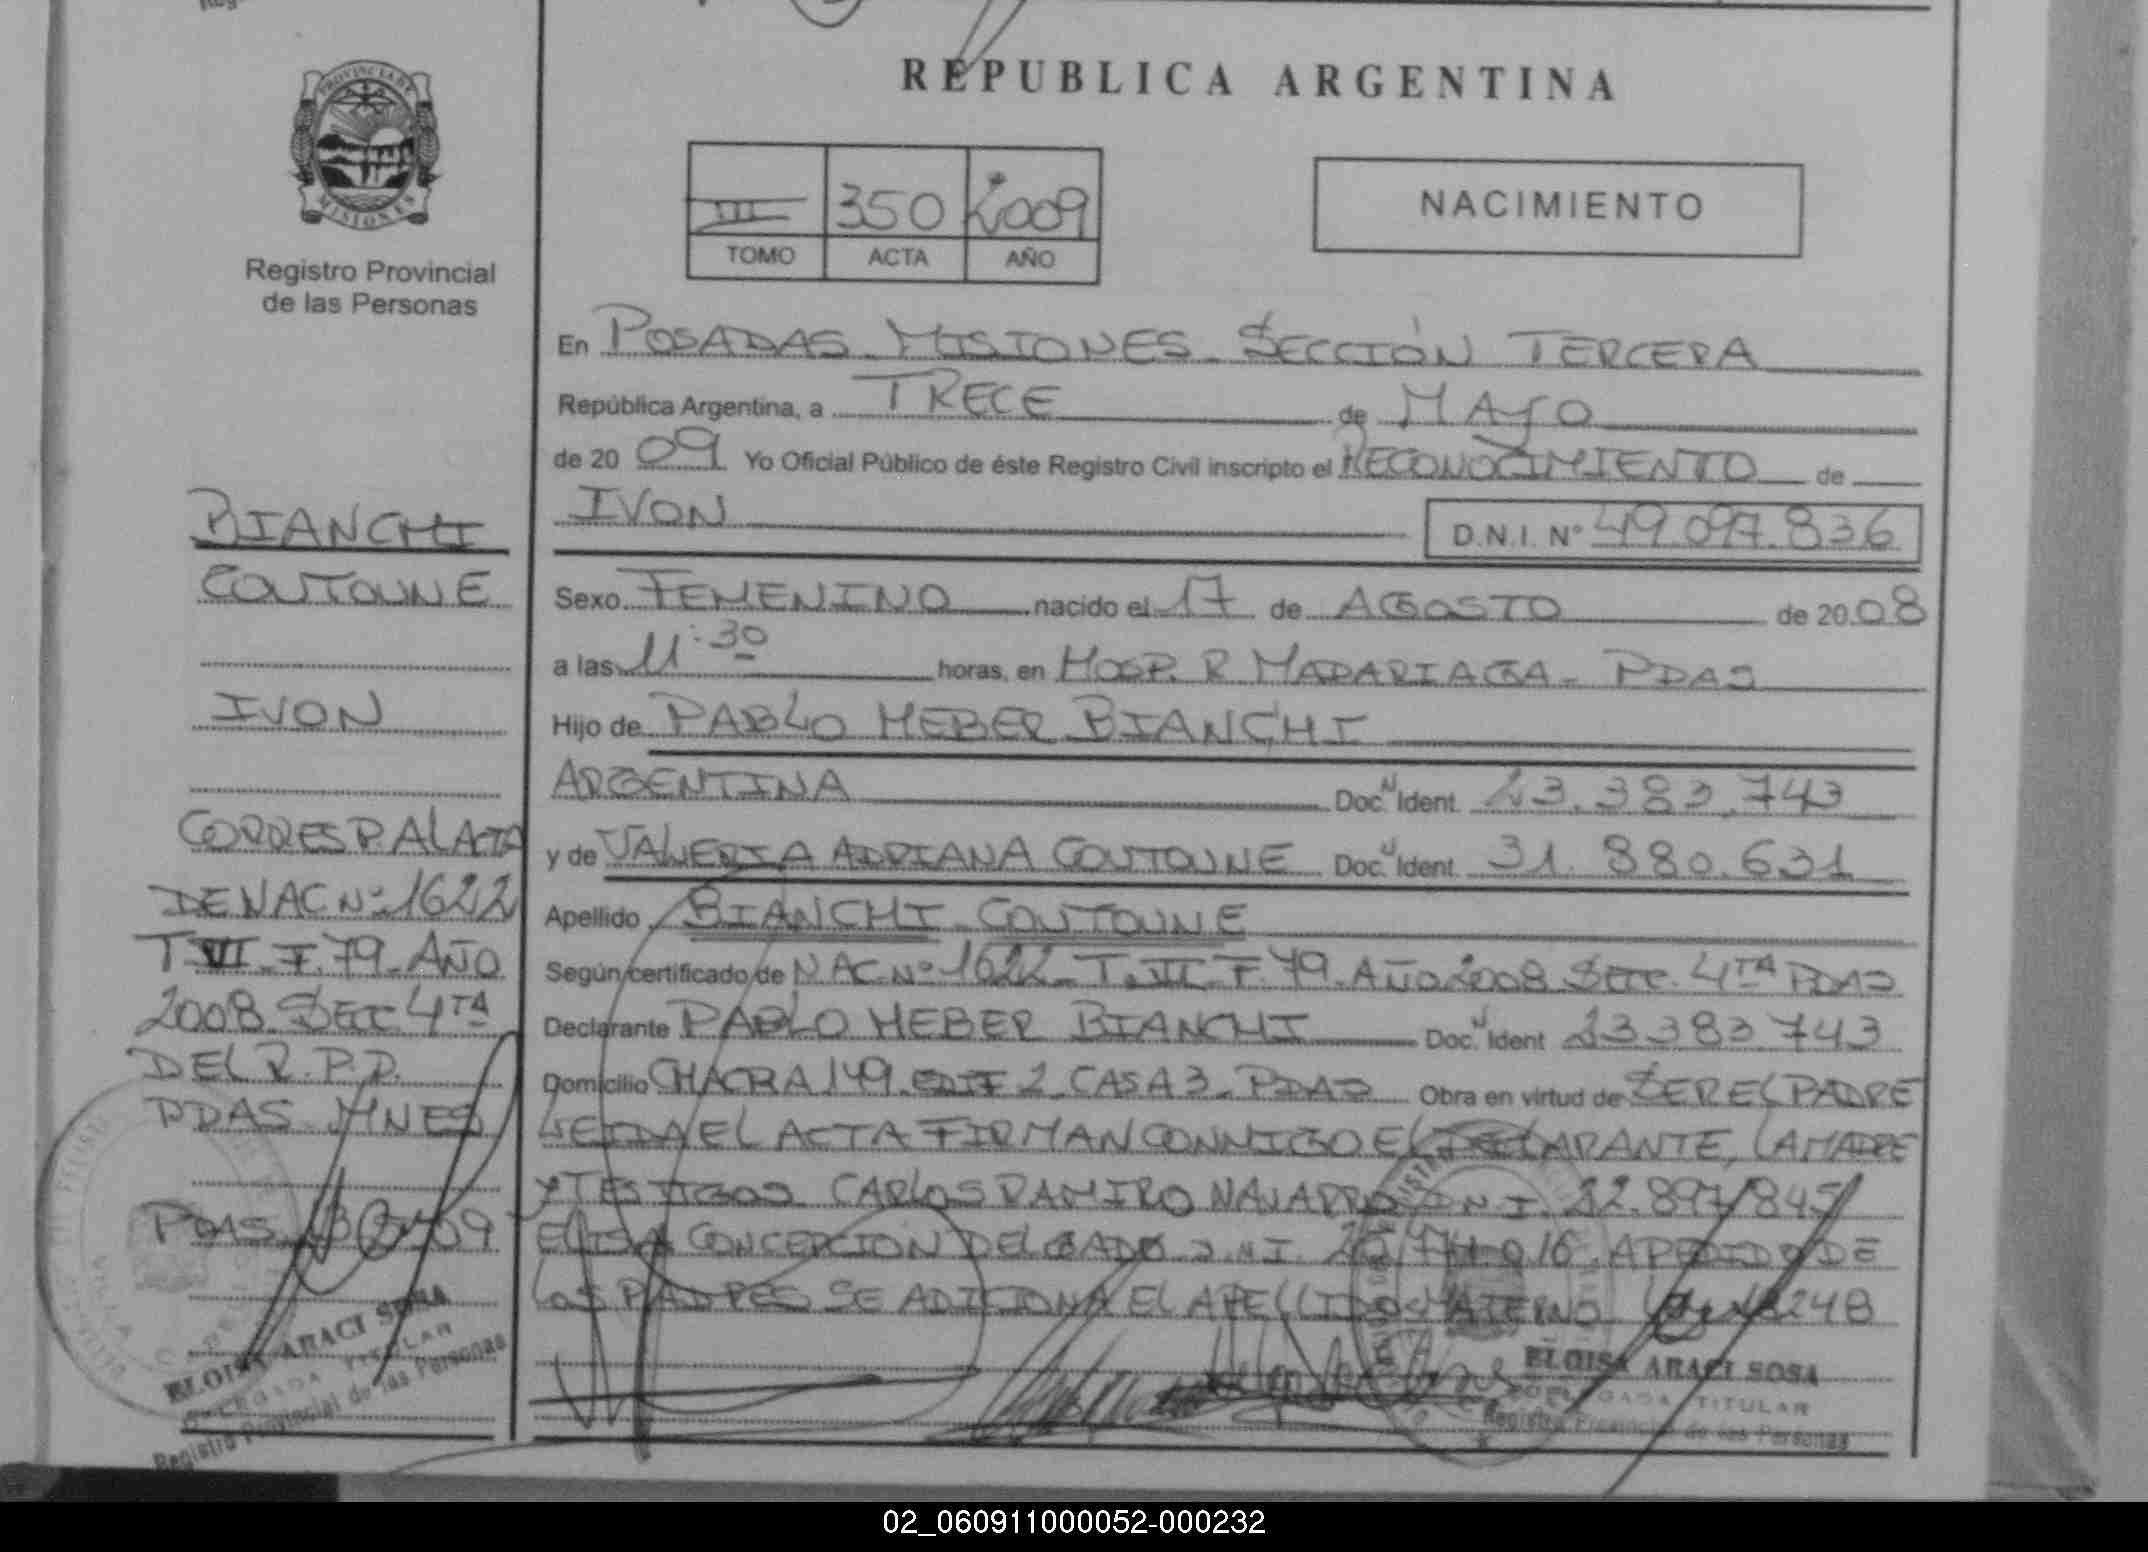 REPUBLICA ARGENTINA
PROVINCIA DE
MISIONES
Registro Provincial
de las Personas
III 350 2009
TOMO ACTA AÑO
NACIMIENTO
En POSADAS - MISIONES - SECCIÓN TERCERA
República Argentina, a TRECE de MAYO
de 20 09 Yo Oficial Público de éste Registro Civil inscripto el RECONOCIMIENTO de
IVON D.N.I. Nº 49.097.836
Sexo FEMENINO nacido el 17 de AGOSTO de 20 08
a las 11:30 horas, en HOSP. R MADARIAGA - PDAS
Hijo de PABLO HEBER BIANCHI
ARGENTINA Doc. Ident. 23.383.743
y de VALERIA ADRIANA COUTOUNE Doc. Ident. 31.880.631
Apellido BIANCHI COUTOUNE
Según certificado de NAC. Nº 1622 - T. VII - F. 79 - AÑO 2008 SEC. 4TA PDAS
Declarante PABLO HEBER BIANCHI Doc. Ident 23383743
Domicilio CHACRA 149 - EDIF 2 - CASA 3 - PDAS Obra en virtud de SER EL PADRE
LEIDA EL ACTA FIRMAN CONMIGO EL DECLARANTE, LA MADRE
Y TESTIGOS CARLOS RAMIRO NAVARRO D.N.I. 22.897.845
ELISA CONCEPCION DELGADO D.N.I. A PEDIDO DE
LOS PADRES SE ADICIONA EL APELLIDO MATERNO 18248
ELOISA ARACI SOSA
DELEGADA TITULAR
Registro Provincial de las Personas
BIANCHI
COUTOUNE
IVON
CORRESP. AL ACTA
DE NAC Nº 1622
T. VII - F. 79 - AÑO
2008 SEC 4TA
DEL R.P.P.
PDAS. MNES
PDAS. 09
ELOISA ARACI SOSA
DELEGADA TITULAR
Registro Provincial de las Personas
02_060911000052-000232